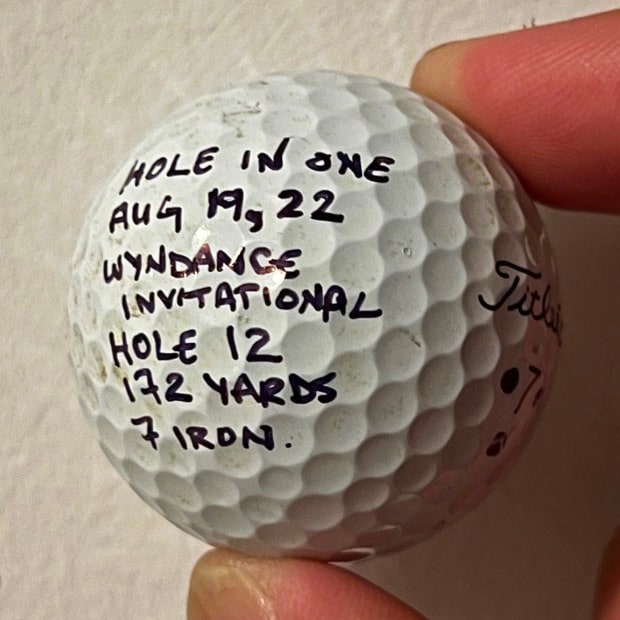 HOLE IN ONE
AUG 19, 22
WYNDANCE
INVITATIONAL
HOLE 12
172 YARDS
7 IRON.
7